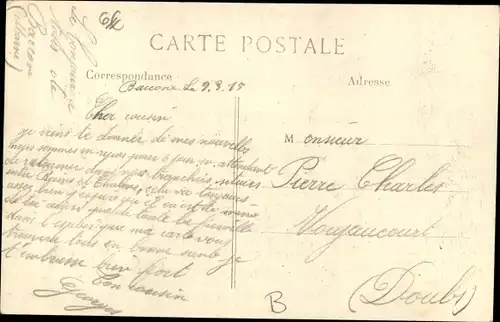 CARTE POSTALE
Correspondance
Adresse
Baconne Le 9.3.15
Cher cousin
je viens te donner de mes nouvelles
nous sommes en repos pour 6 jours en attendant
de retourner dans nos tranchées, situées
entre Reims et Chalons, cela va toujours
assez bien j'espère qu'il en est de même
de toi ainsi que de toute la famille
dans l'espoir que ma carte vous
trouvera tous en bonne santé je
t'embrasse bien fort
Ton cousin
Georges
Monsieur
Pierre Charles
Doubs
B
Le bonjour de
Baconne
(Marne)